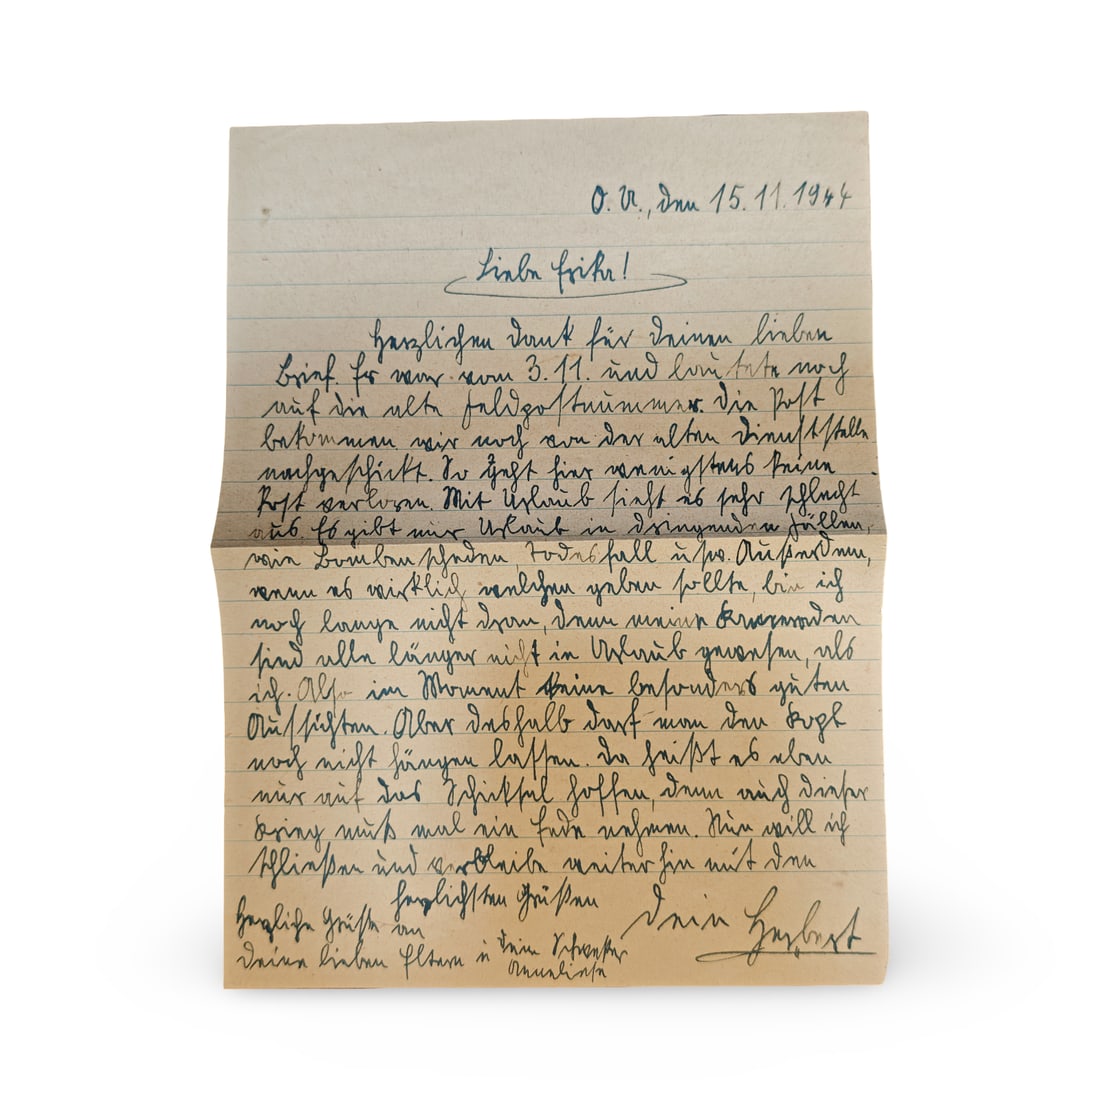 O. U., den 15.11.1944
Liebe Erika!
Herzlichen Dank für Deinen lieben
Brief. Er war vom 3.11. und lautete noch
auf die alte Feldpostnummer. Die Post
bekommen wir noch von der alten Dienststelle
nachgeschickt. So geht hier wenigstens keine
Post verloren. Mit Urlaub sieht es sehr schlecht
aus. Es gibt nur Urlaub in dringenden Fällen,
wie Bombenschaden, Todesfall usw. Außerdem,
wenn es wirklich welchen geben sollte, bin ich
noch lange nicht dran, denn meine Kameraden
sind alle länger nicht in Urlaub gewesen, als
ich. Also im Moment keine besonders guten
Aussichten. Aber deshalb darf man den Kopf
noch nicht hängen lassen. Da heißt es eben
nur auf das Schicksal hoffen, denn auch dieser
Krieg muß mal ein Ende nehmen. Nun will ich
schließen und verbleibe weiterhin mit den
herzlichsten Grüßen
Dein Herbert
Herzliche Grüße an
Deine lieben Eltern u. Dein Schwester
Anneliese